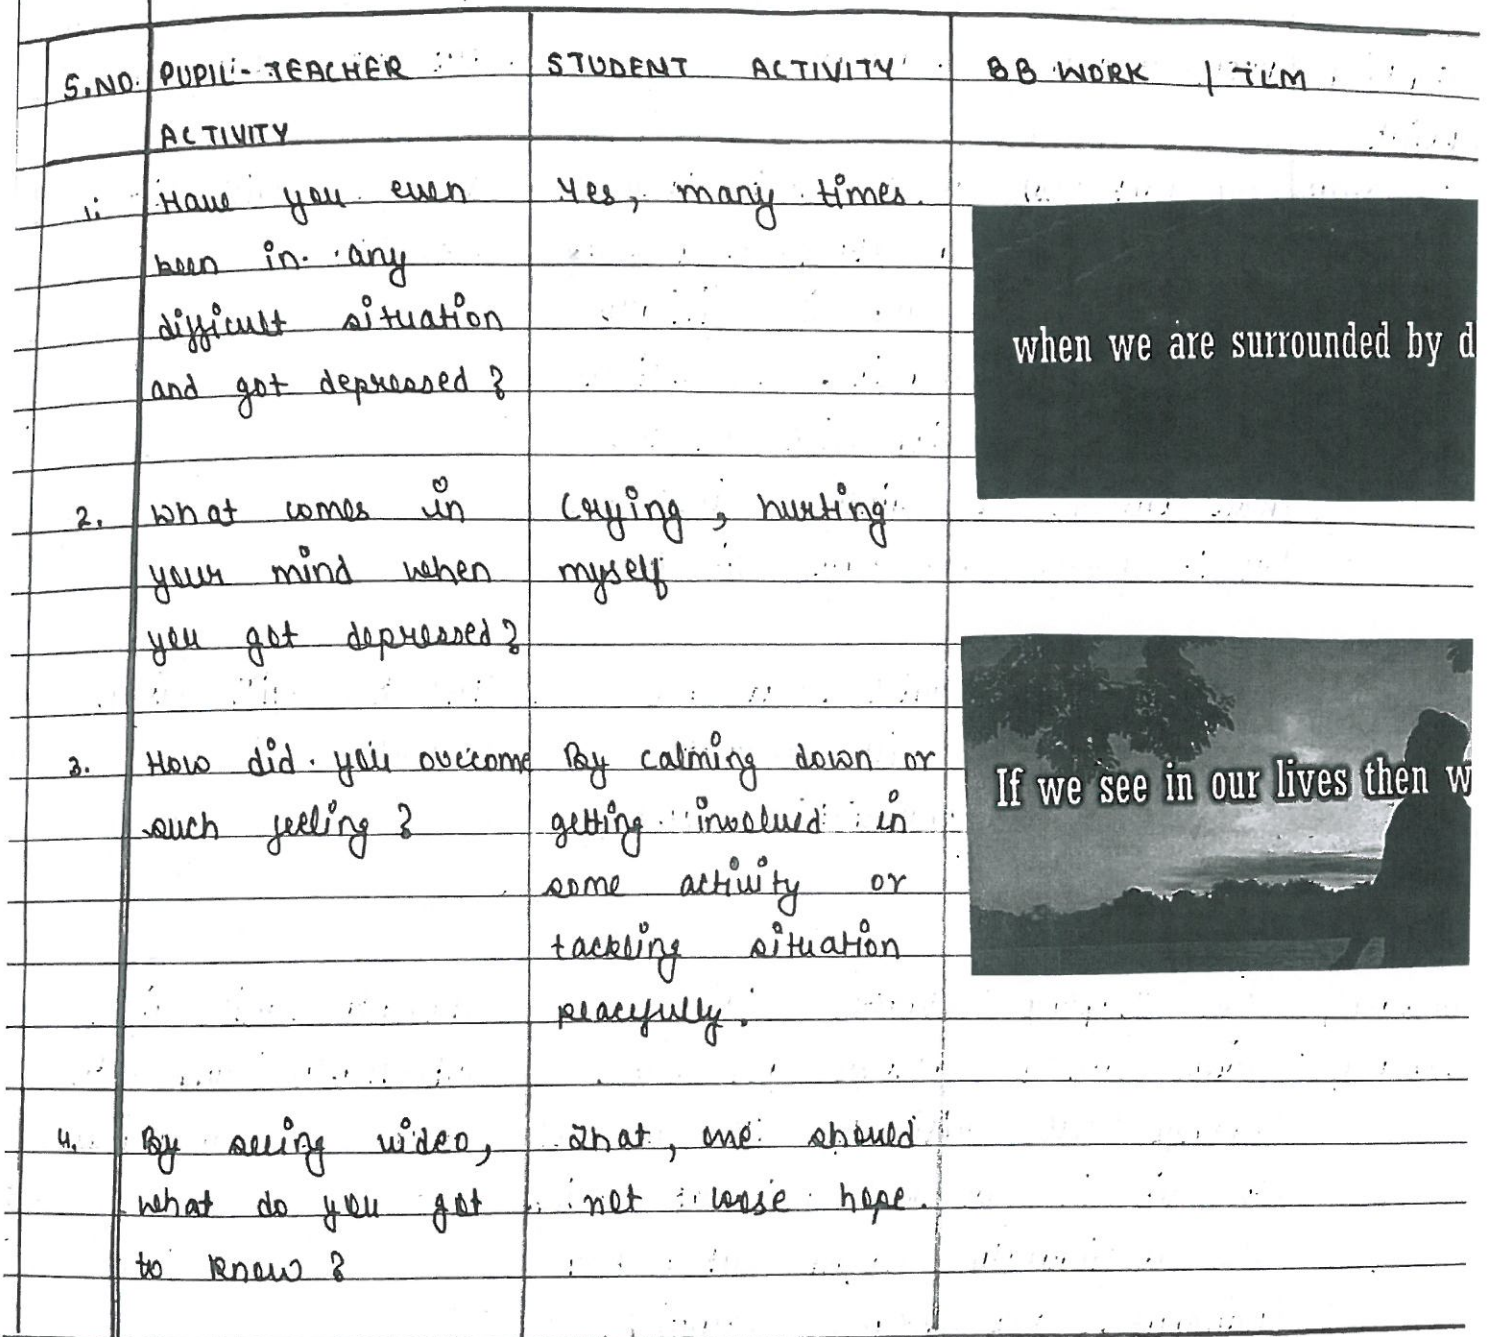 S.NO. PUPIL-TEACHER ACTIVITY
STUDENT ACTIVITY
BB WORK / TLM
1. Have you even
been in any
difficult situation
and got depressed?
Yes, many times.
when we are surrounded by d
2. What comes in
your mind when
you got depressed?
Crying, hurting
myself
3. How did you overcome
such feeling?
By calming down or
getting involved in
some activity or
tackling situation
peacefully.
If we see in our lives then w
4. By seeing video,
what do you got
to know?
That, one should
not loose hope.